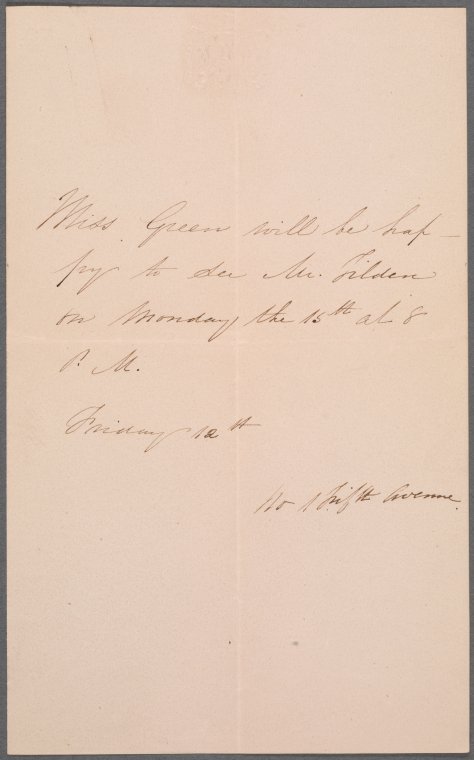 Miss Green will be hap-
py to see Mr. Tilden
on Monday the 15th at 8
P. M.
Friday 12th
No 1 Fifth Avenue.